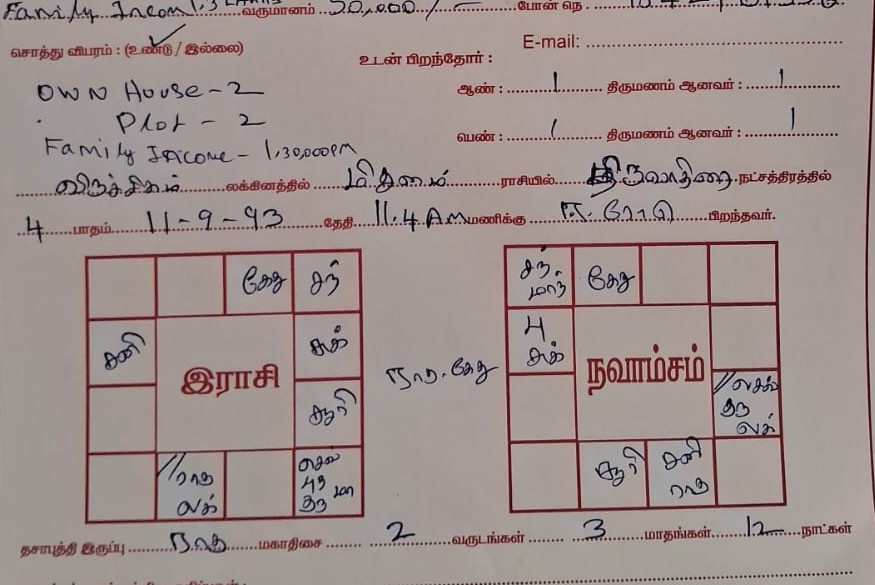 Family Income வருமானம் 50,000/- போன் நெ.
சொத்து விபரம் : (உண்டு / இல்லை)
உடன் பிறந்தோர் :
E-mail:
OWN House - 2
Plot - 2
Family Income - 1,30,000 PM
ஆண் : 1 திருமணம் ஆனவர் : 1
பெண் : 1 திருமணம் ஆனவர் : 1
விருச்சிகம் லக்கினத்தில் மிதுனம் ராசியில் திருவாதிரை நட்சத்திரத்தில்
4 பாதம் 11-9-93 தேதி 11.4 AM மணிக்கு பிறந்தவர்.
கேது சந்
சனி சுக்
இராசி
சூரி
ராகு லக்
செவ் புத குரு மா
ராகு-கேது
சந் மாந் கேது
சுக்
நவாம்சம்
செவ் குரு லக்
சூரி சனி ராகு
தசாபுத்தி இருப்பு ராகு மகாதிசை 2 வருடங்கள் 3 மாதங்கள் 12 நாட்கள்